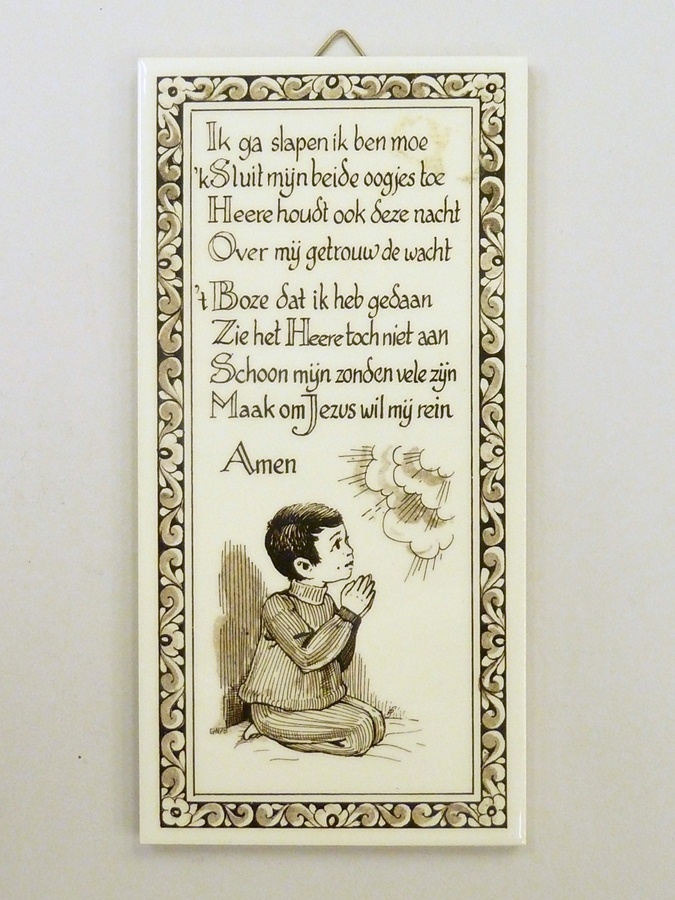 Ik ga slapen ik ben moe
'k Sluit mijn beide oogjes toe
Heere houdt ook deze nacht
Over mij getrouw de wacht
't Boze dat ik heb gedaan
Zie het Heere toch niet aan
Schoon mijn zonden vele zijn
Maak om Jezus wil mij rein
Amen